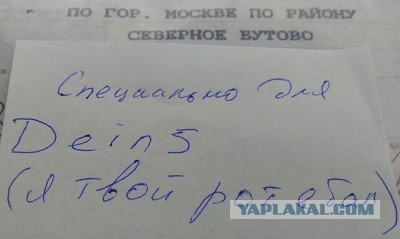 ПО ГОР. МОСКВЕ ПО РАЙОНУ
СЕВЕРНОЕ БУТОВО
Специально для
Dein5
(я твой рот ебал)
YAPLAKAL.COM